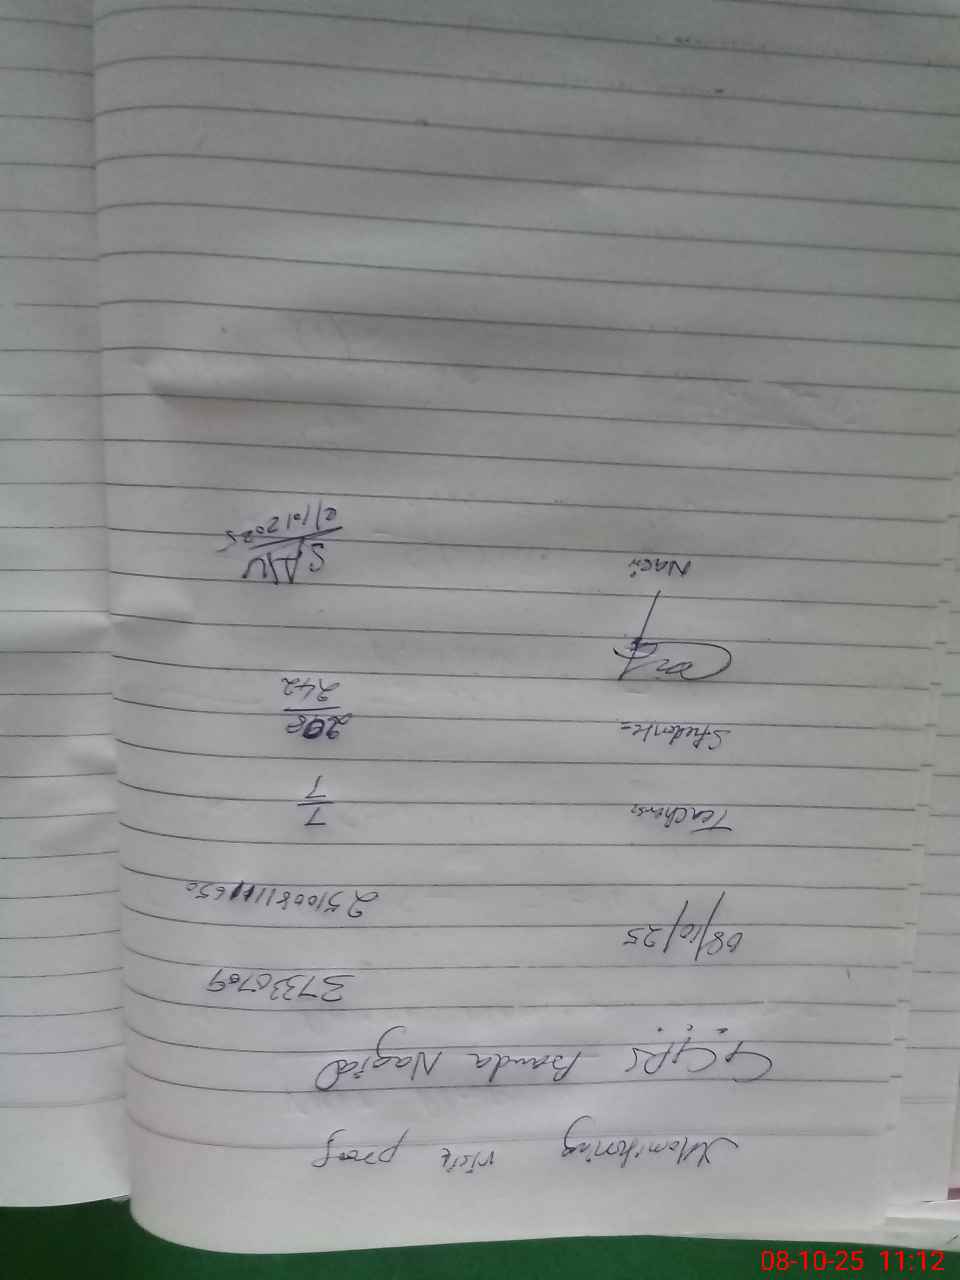 Monitoring visit proof
G.G.P.S Banda Nagid
37330709
08/10/25 251008111650
Teachers 7/7
Students= 208/242
Nacir
08-10-25 11:12